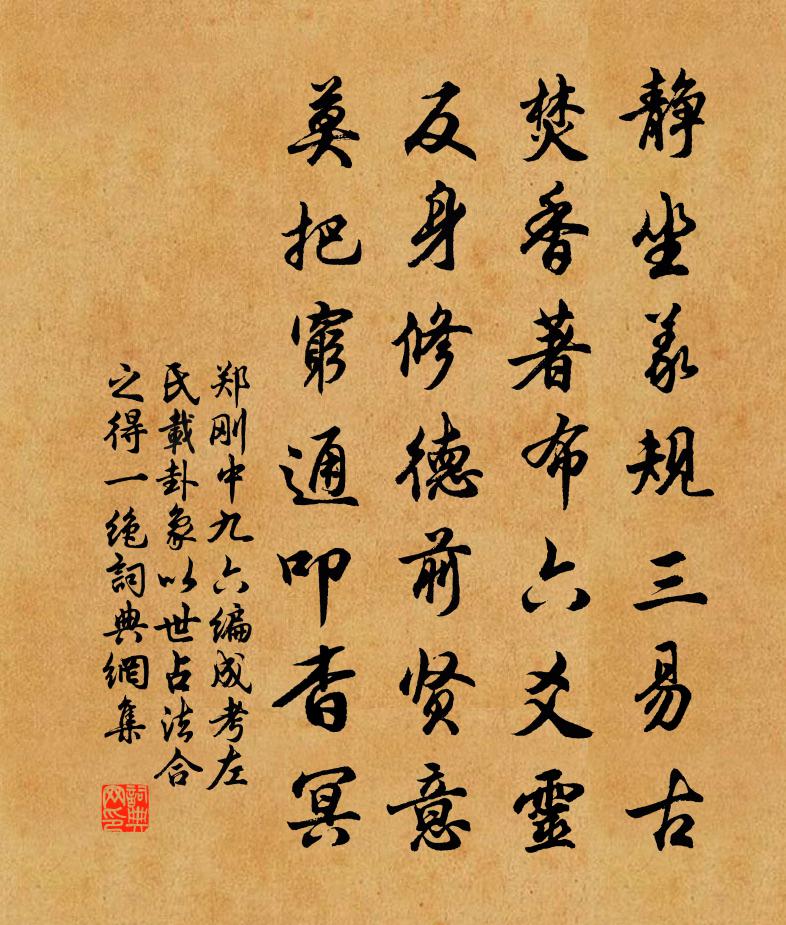 静坐羲规三易古
焚香著布六爻靈
反身修德前贤意
莫把窮通叩杳冥
郑刚中九六编成考左
氏載卦象以世占法合
之得一绝詞典網集
詞典網印